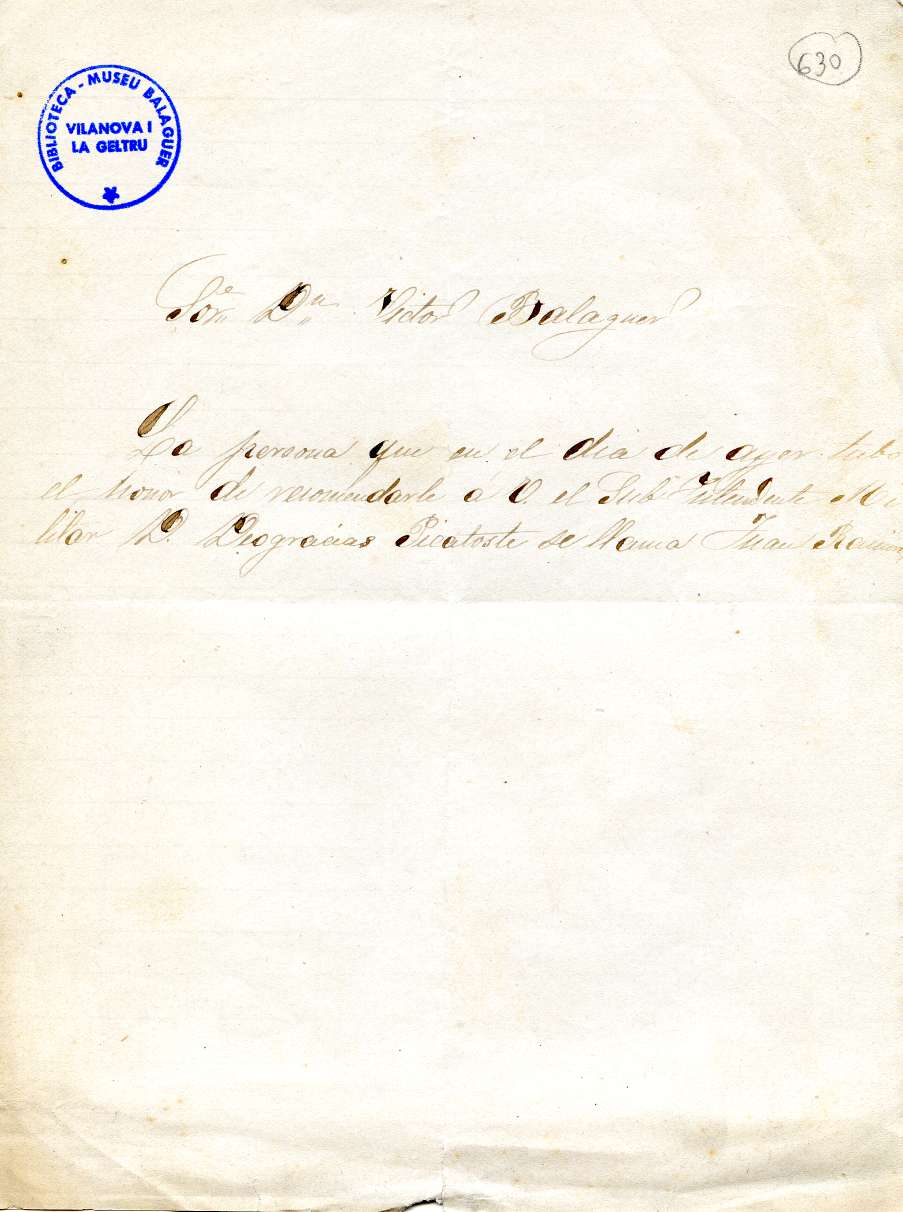 630
BIBLIOTECA - MUSEU BALAGUER
VILANOVA I
LA GELTRU
Sor. Dn. Victor Balaguer
La persona que en el dia de ayer tubo
el honor de recomendarle á V. el Sub Yntendente Mi
litar D. Deogracias Picatoste se llama Juan Ramon